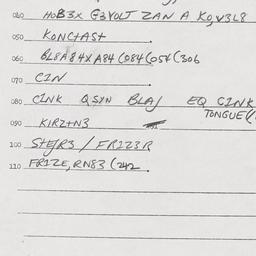 040 HOB3X G3VOLT ZAN A KO,V3L8
050 KONCTAST
060 BL8A84XA84 (084(054(306
070 CIN
080 CINK QSYN BLAJ EQ CINK
TONGUE(
090 KIRZTN3
100 STEJR3 / FRIZ3R
110 FRIZE,RN83 (242